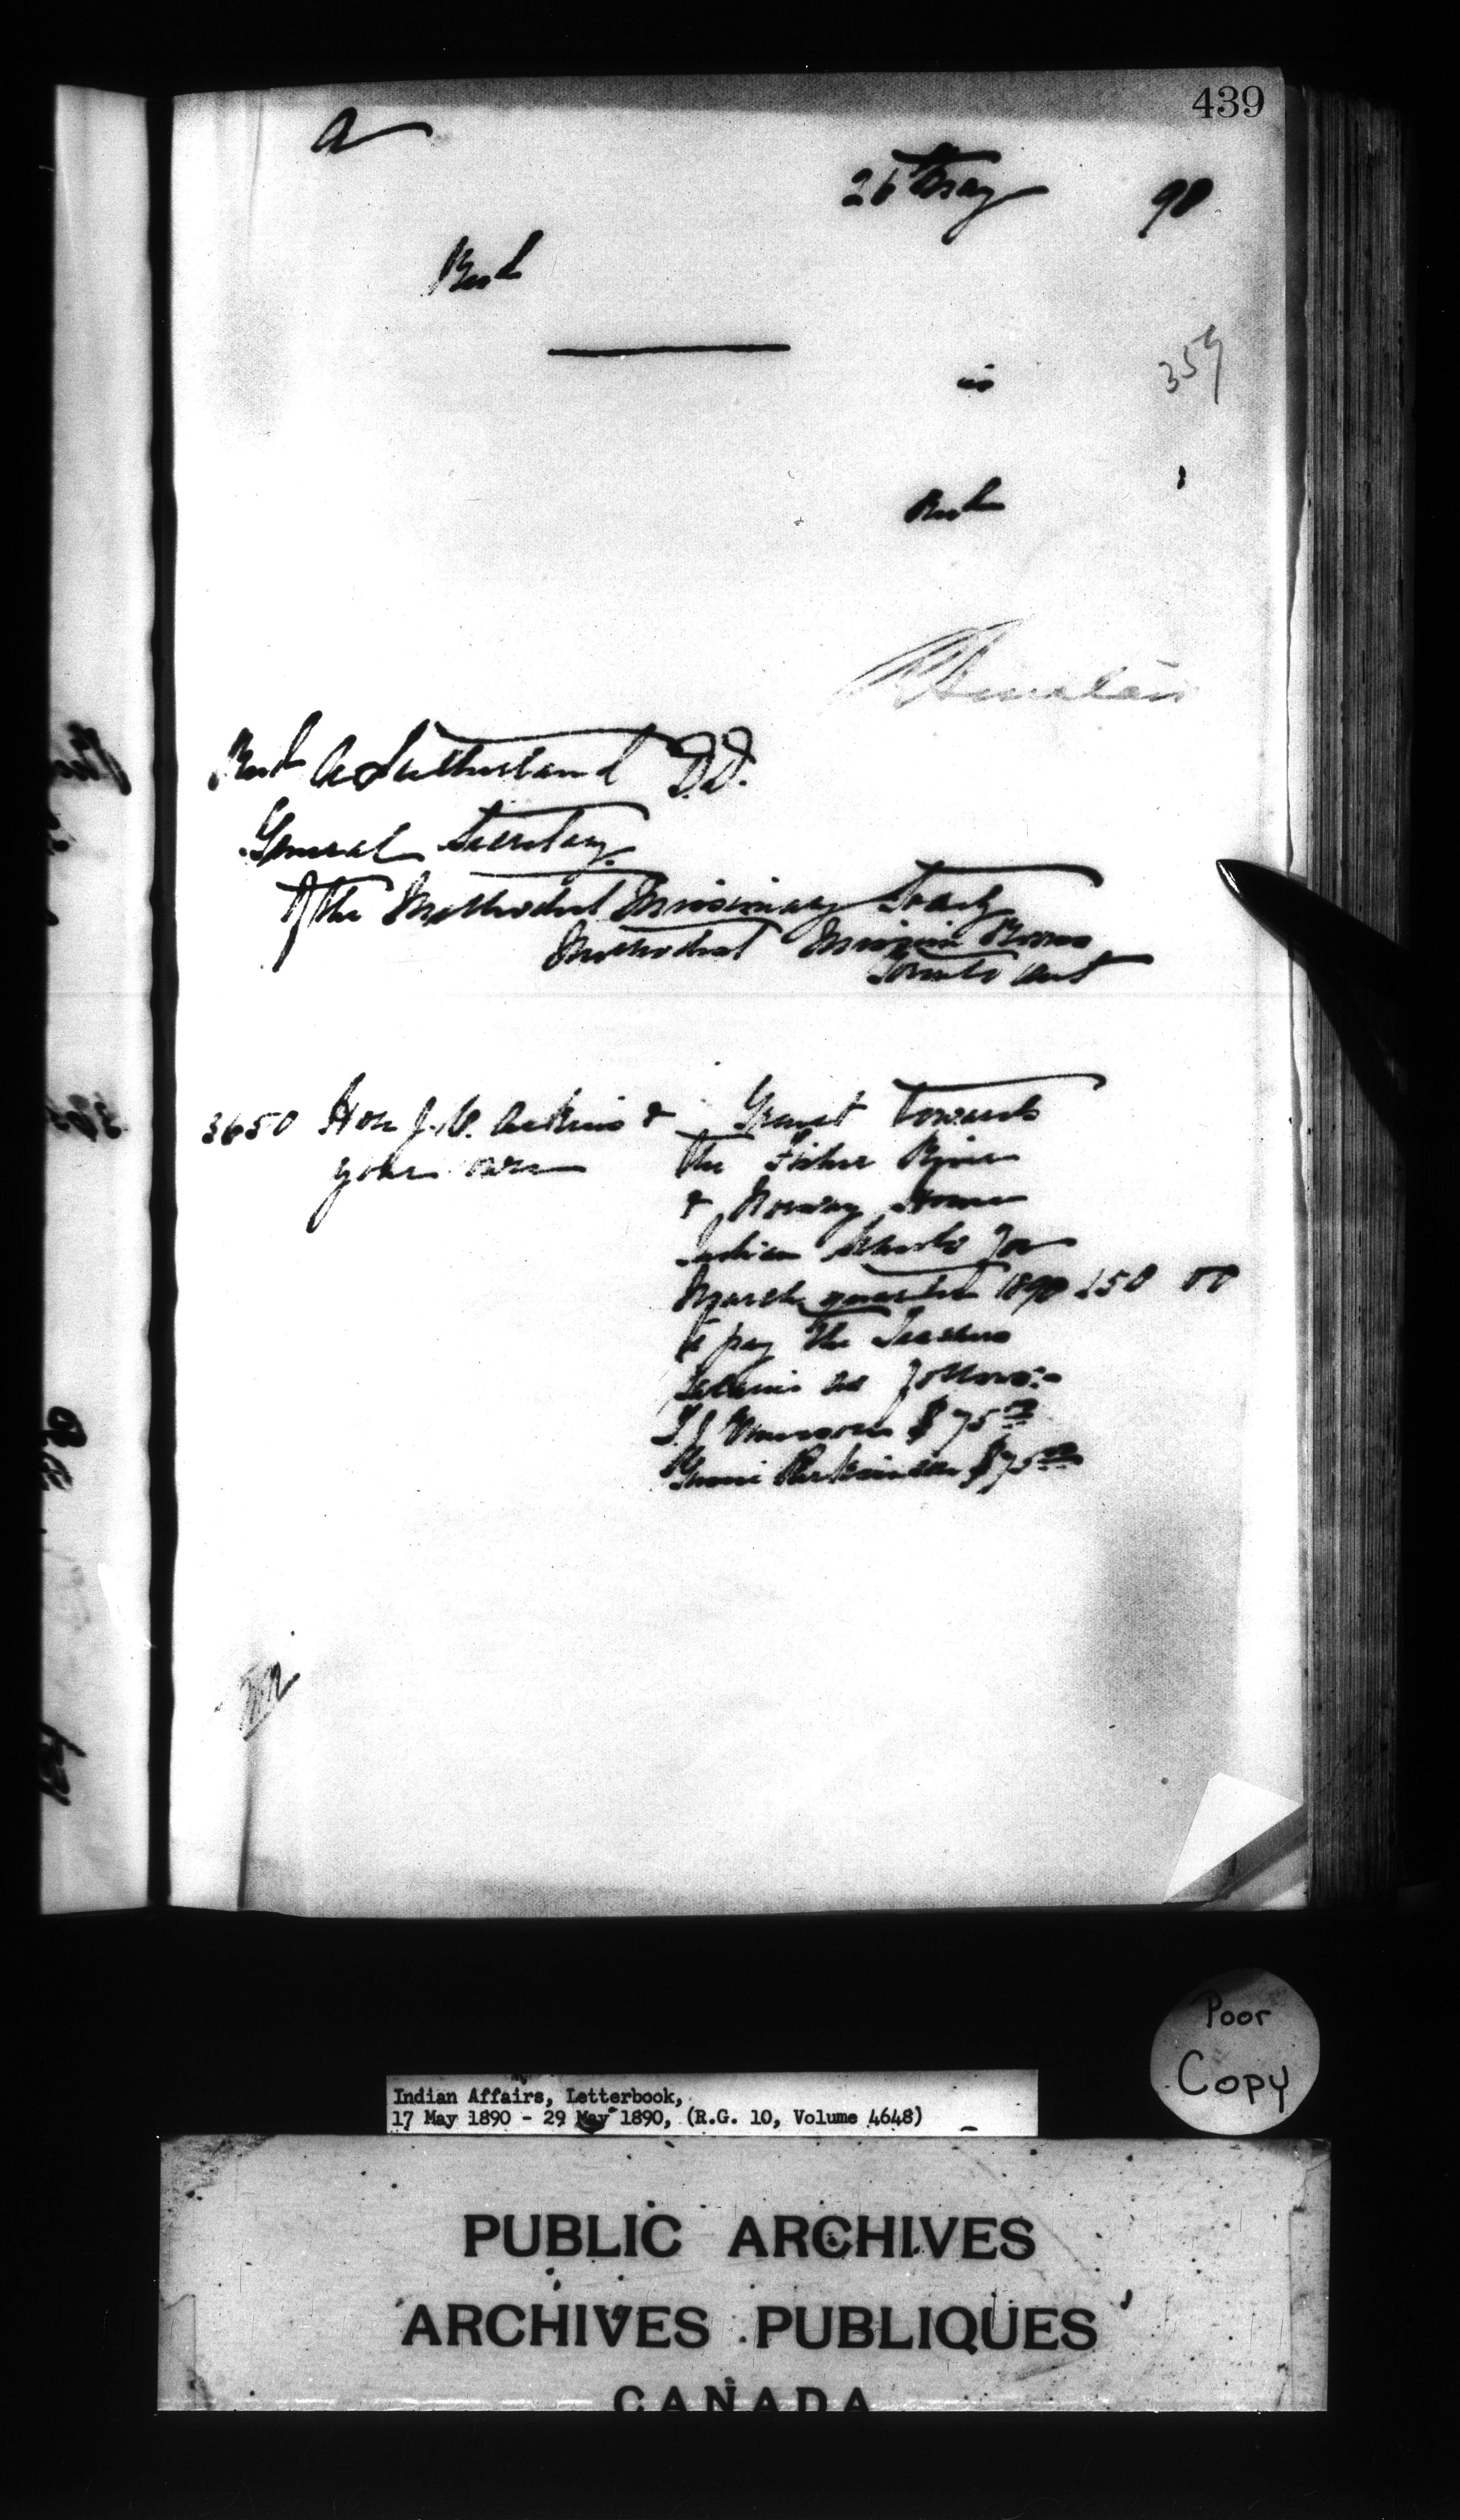 439
a
26 May 90
Revd
is
359
Revd
Revd A Sutherland D.D.
General Secretary
of the Methodist Missionary Society
Methodist Mission Rooms
Toronto Ont
3650 Hon J. C. Aikins & Grant towards
your own the Fisher River
& Norway House
Indian Schools for
March quarter 1890 150 00
to pay the Teachers
Salaries as follows:-
$75 00
$75 00
Poor
Copy
Indian Affairs, Letterbook,
17 May 1890 - 29 May 1890, (R.G. 10, Volume 4648)
PUBLIC ARCHIVES
ARCHIVES PUBLIQUES
CANADA